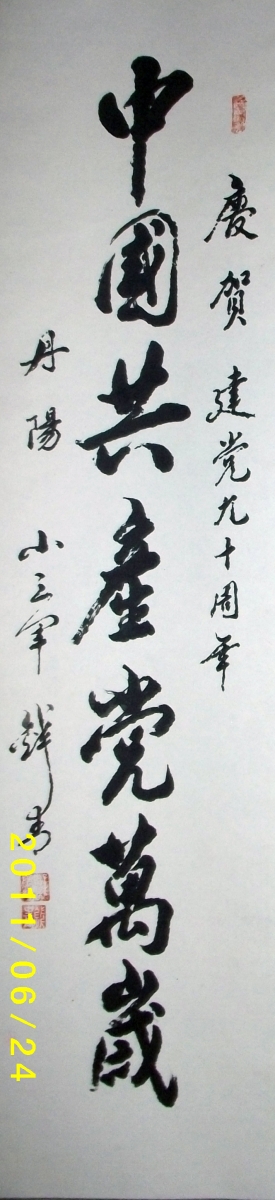 慶賀建党九十周年
中國共產党萬歲
丹陽 小三军 錢青
2011/06/24